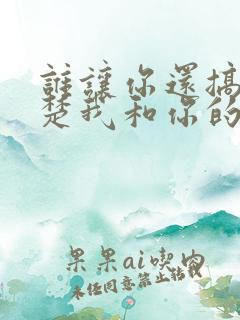 誰讓你還搞
楚我和你的
果果ai吃肉
未經同意禁止轉載